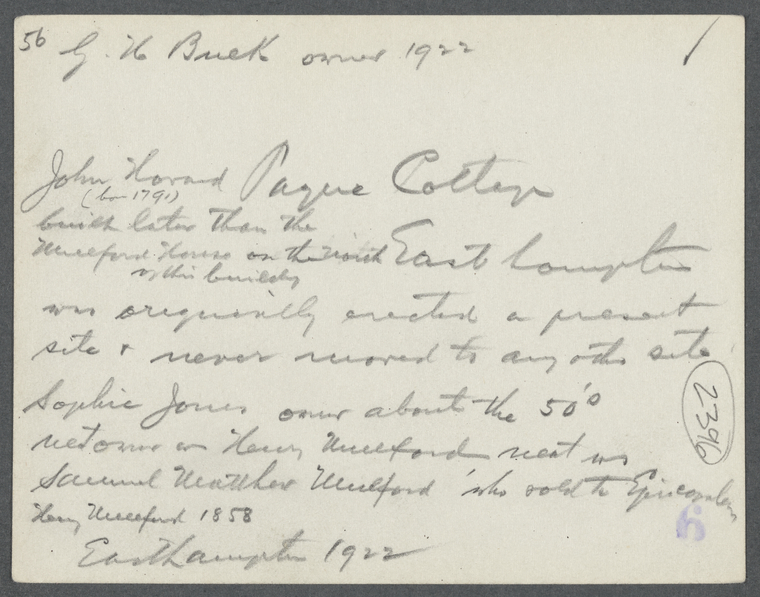 56 G. H Buek owner 1922
John Howard Payne Cottage
(bor 1791)
built later than the
Mulford House on the North East hampton
of this building
was originally erected on present
site & never moved to any other site
Sophie Jones owner about the 50's
next owner was Henry Mulford next was
Samuel Matthew Mulford who sold to Episcopalians
Henry Mulford 1858
Easthampton 1922
2396
5